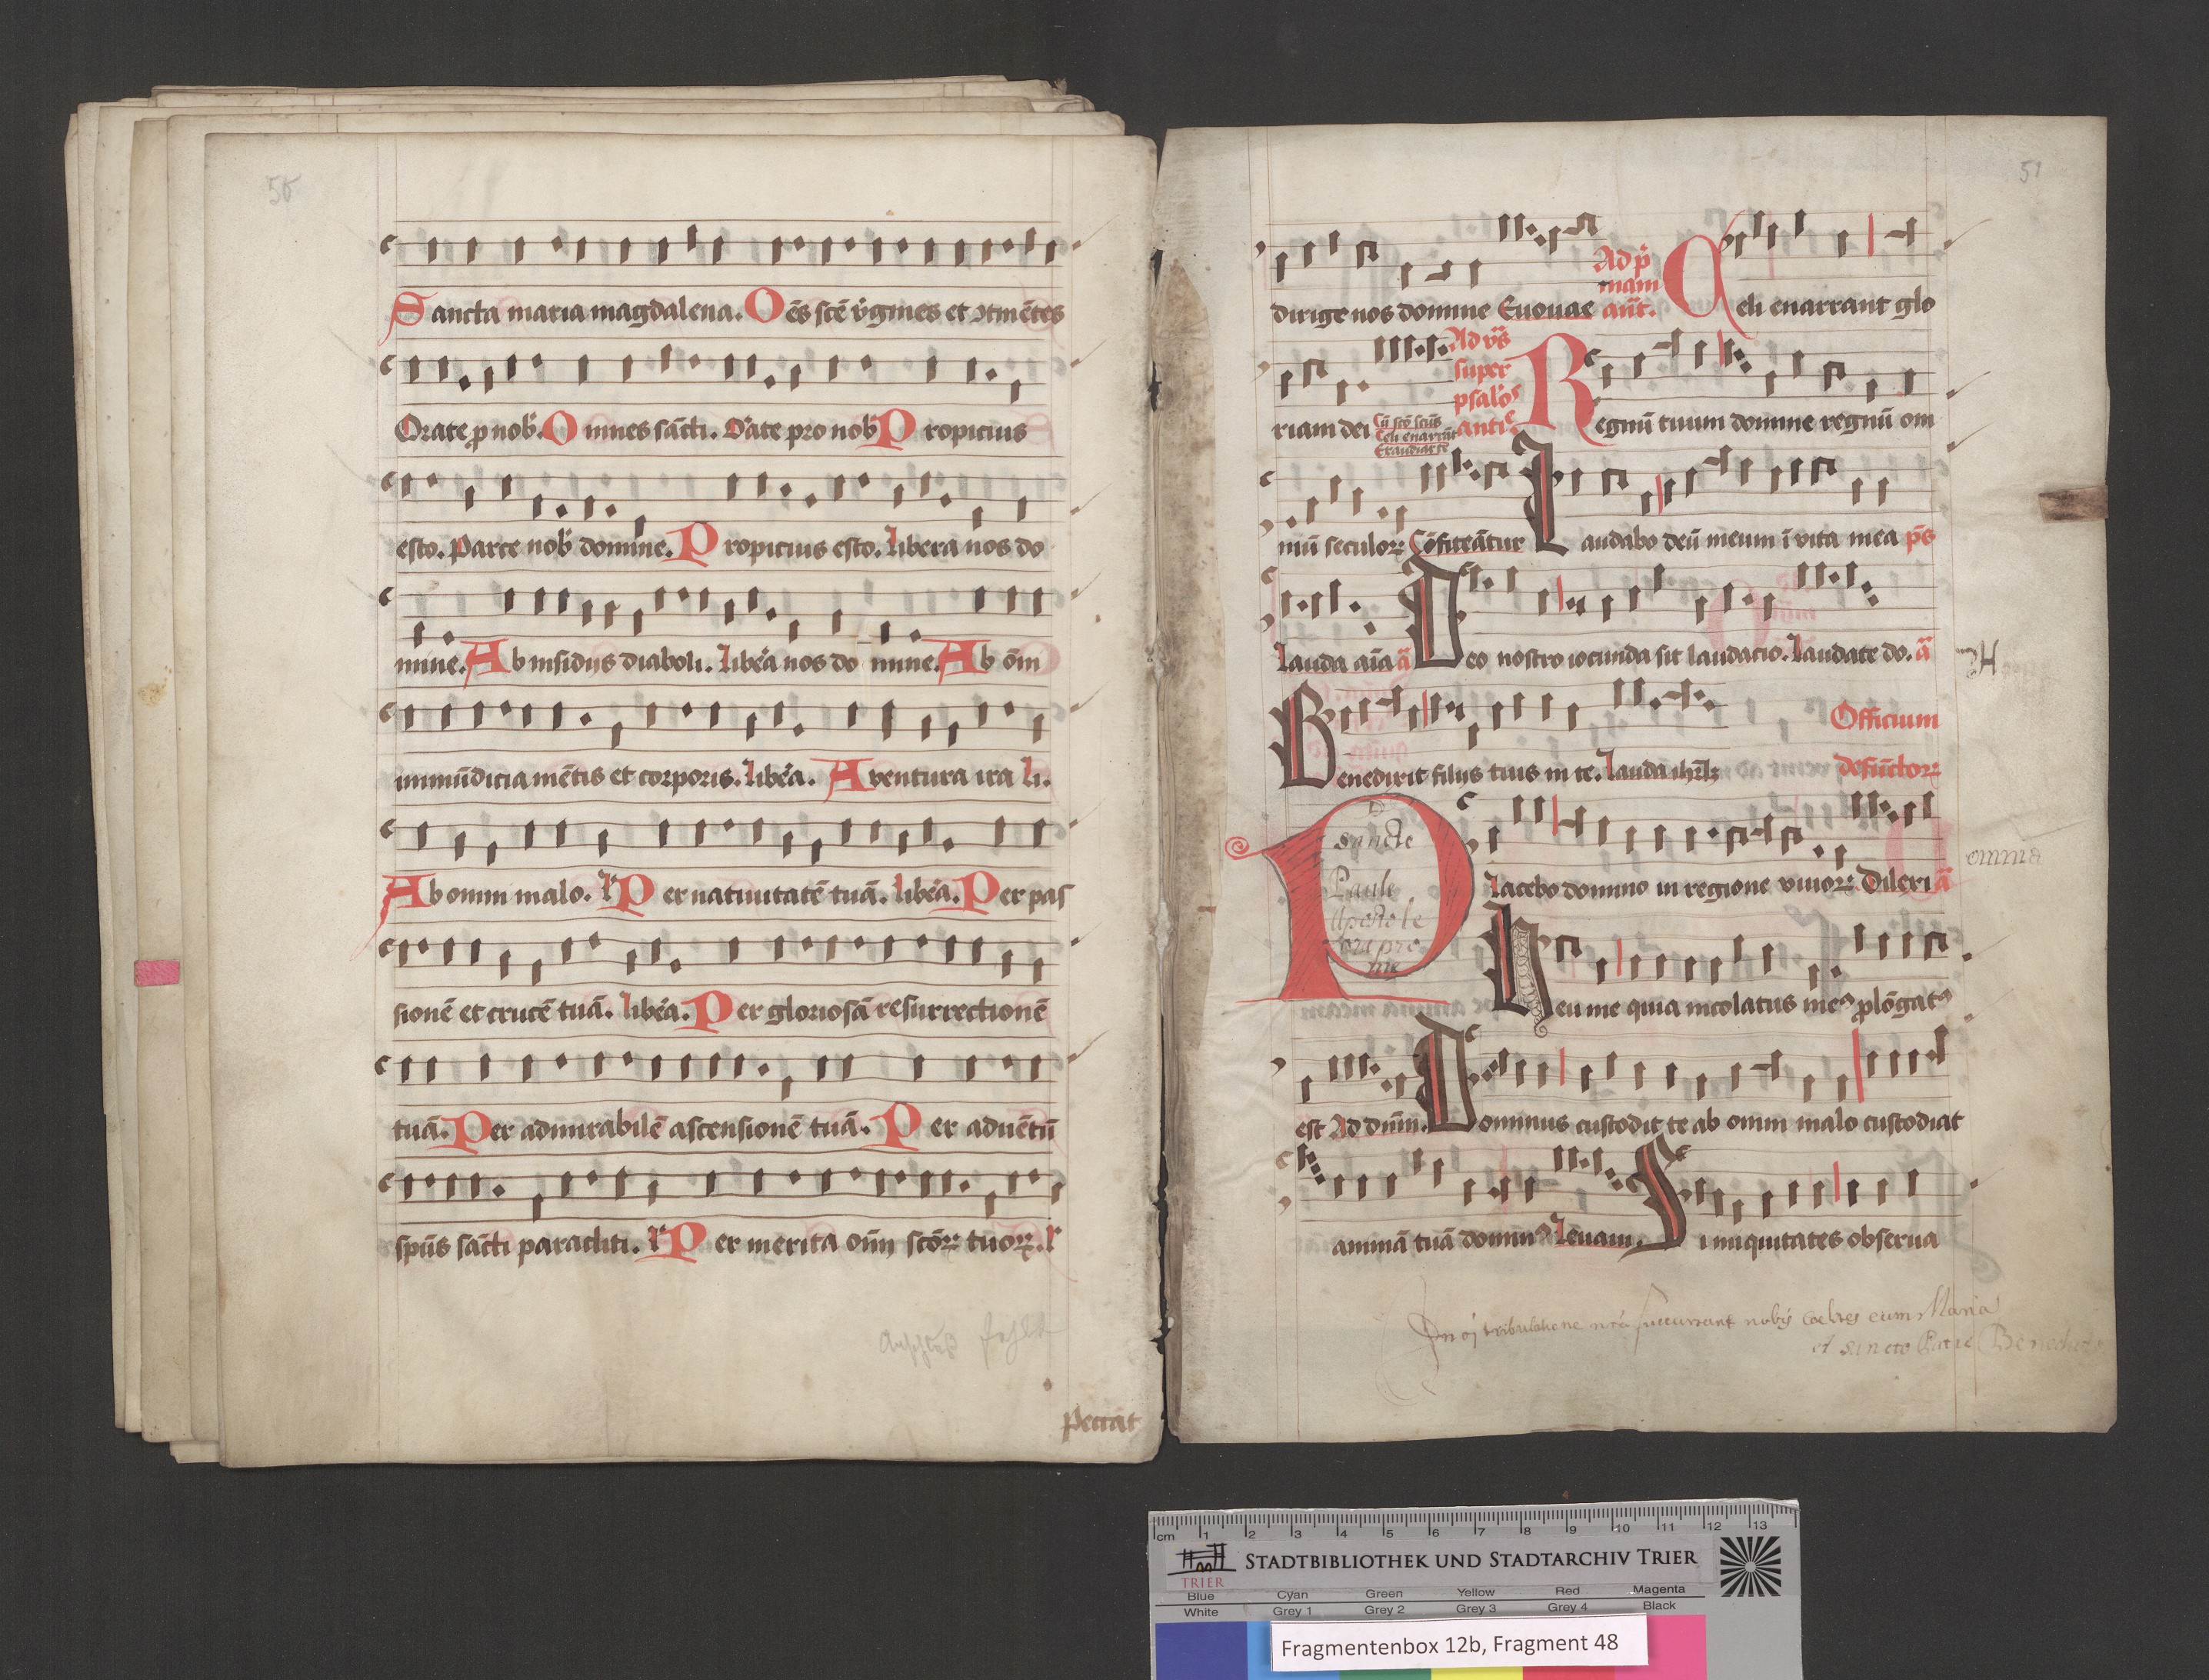 50
Sancta maria magdalena. Oēs scē v̄gines et ↄtinētes
Orate p nob. Omnes sācti. Orate pro nob Propicius
esto. Parce nob domine. Propicius esto. Libera nos do
mine. Ab insidiis diaboli. Libēa nos do mine. Ab ōni
inmūdicia mētis et corporis. Libēa. A ventura ira li.
Ab omni malo. lr Per natiuitatē tuā. Libēa. Per pas
sionē et crucē tuā. Libēa. Per gloriosā resurrectionē
tuā. Per admirabilē ascensionē tuā. Per aduētū
spūs sācti paracliti. lr Per merita oīm scōꝝ tuoꝝ. lr
Anschluß fehlt
Peccāt
51
Ad p̄
mam
dirige nos domine Euouae ant̄. Celi enarrant glo
Ad vs̄
super
psalōs
riam dei Cū scō scūs
Celi enarrāt
Exaudiat te
antic Regnū tuum domine regnū om
niū seculoꝝ Cōfiteātur Laudabo deū meum ī vita mea ps̄
Lauda aīa ā Deo nostro iocunda sit laudacio. Laudate do. ā
Officium
Benedixit filijs tuis in te. Lauda ihrlꝫ defūctoꝝ
O
Sancte
Paule
Apostole
ora pro
me
omnia
Placebo domino in regione viuoꝝ Dilexi ā
Heu me quia incolatus meꝰ plōgatꝰ
est Ad dnm̄. Dominus custodit te ab omni malo custodiat
animā tuā dominꝰ Leuaui. Si iniquitates obserua
In oi tribulatione nrā succurrant nobis coelites cum Maria
et sancto Patre Benedicto
cm 1 2 3 4 5 6 7 8 9 10 11 12 13
TRIER
STADTBIBLIOTHEK UND STADTARCHIV TRIER
Blue Cyan Green Yellow Red Magenta
White Grey 1 Grey 2 Grey 3 Grey 4 Black
Fragmentenbox 12b, Fragment 48